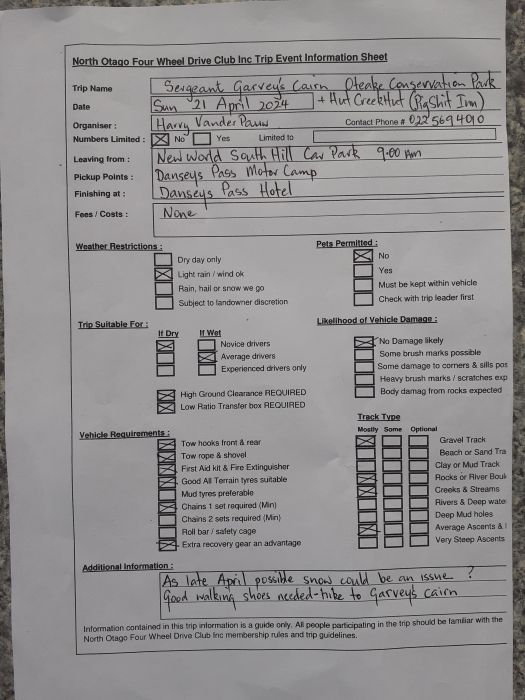 North Otago Four Wheel Drive Club Inc Trip Event Information Sheet
Trip Name Sergeant Garvey's Cairn Oteake Conservation Park
Date Sun 21 April 2024 + Hut Creek Hut (Pigshit Inn)
Organiser : Harry Vander Paauw Contact Phone # 022 5694010
Numbers Limited : No Yes Limited to
Leaving from : New World South Hill Car Park 9.00 Am
Pickup Points : Danseys Pass Motor Camp
Finishing at : Danseys Pass Hotel
Fees / Costs : None
Weather Restrictions :
Dry day only
Light rain / wind ok
Rain, hail or snow we go
Subject to landowner discretion
Pets Permitted :
No
Yes
Must be kept within vehicle
Check with trip leader first
Trip Suitable For :
If Dry If Wet
Novice drivers
Average drivers
Experienced drivers only
High Ground Clearance REQUIRED
Low Ratio Transfer box REQUIRED
Likelihood of Vehicle Damage :
No Damage likely
Some brush marks possible
Some damage to corners & sills pos
Heavy brush marks / scratches exp
Body damag from rocks expected
Vehicle Requirements :
Tow hooks front & rear
Tow rope & shovel
First Aid kit & Fire Extinguisher
Good All Terrain tyres suitable
Mud tyres preferable
Chains 1 set required (Min)
Chains 2 sets required (Min)
Roll bar / safety cage
Extra recovery gear an advantage
Track Type
Mostly Some Optional
Gravel Track
Beach or Sand Tra
Clay or Mud Track
Rocks or River Boul
Creeks & Streams
Rivers & Deep wate
Deep Mud holes
Average Ascents &
Very Steep Ascents
Additional Information :
As late April possible snow could be an issue ?
Good walking shoes needed - hike to Garvey's cairn
Information contained in this trip information is a guide only. All people participating in the trip should be familiar with the
North Otago Four Wheel Drive Club Inc membership rules and trip guidelines.